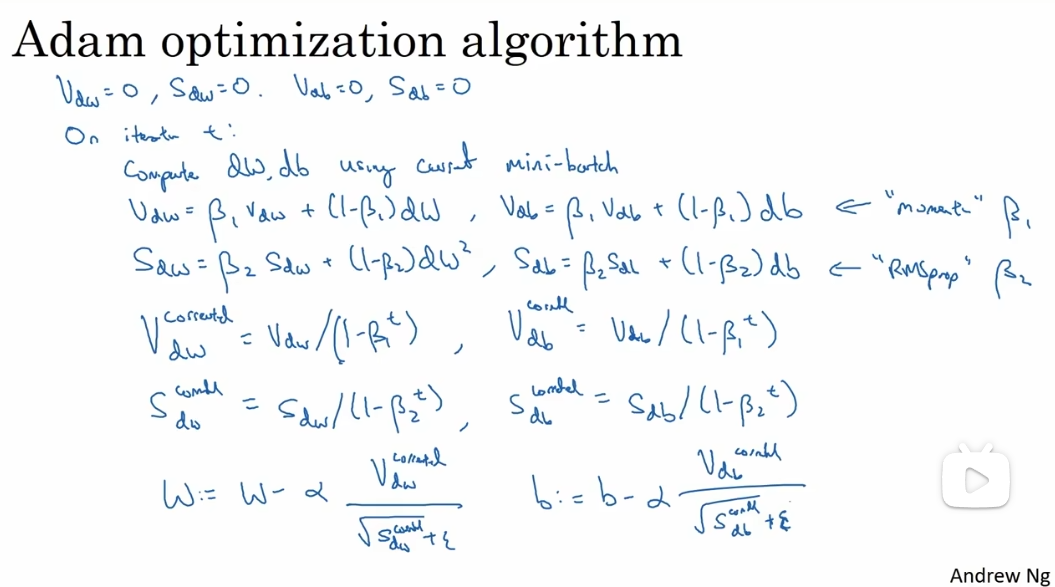 Adam optimization algorithm
V_dw = 0, S_dw = 0. V_db = 0, S_db = 0
On iteration t:
Compute dW, db using current mini-batch
V_dw = β₁ V_dw + (1-β₁) dW, V_db = β₁ V_db + (1-β₁) db ← "moment" β₁
S_dw = β₂ S_dw + (1-β₂) dW², S_db = β₂ S_db + (1-β₂) db ← "RMSprop" β₂
V_dw^corrected = V_dw / (1-β₁^t), V_db^corrected = V_db / (1-β₁^t)
S_dw^corrected = S_dw / (1-β₂^t), S_db^corrected = S_db / (1-β₂^t)
W := W - α V_dw^corrected / (√S_dw^corrected + ε) b := b - α V_db^corrected / (√S_db^corrected + ε)
Andrew Ng